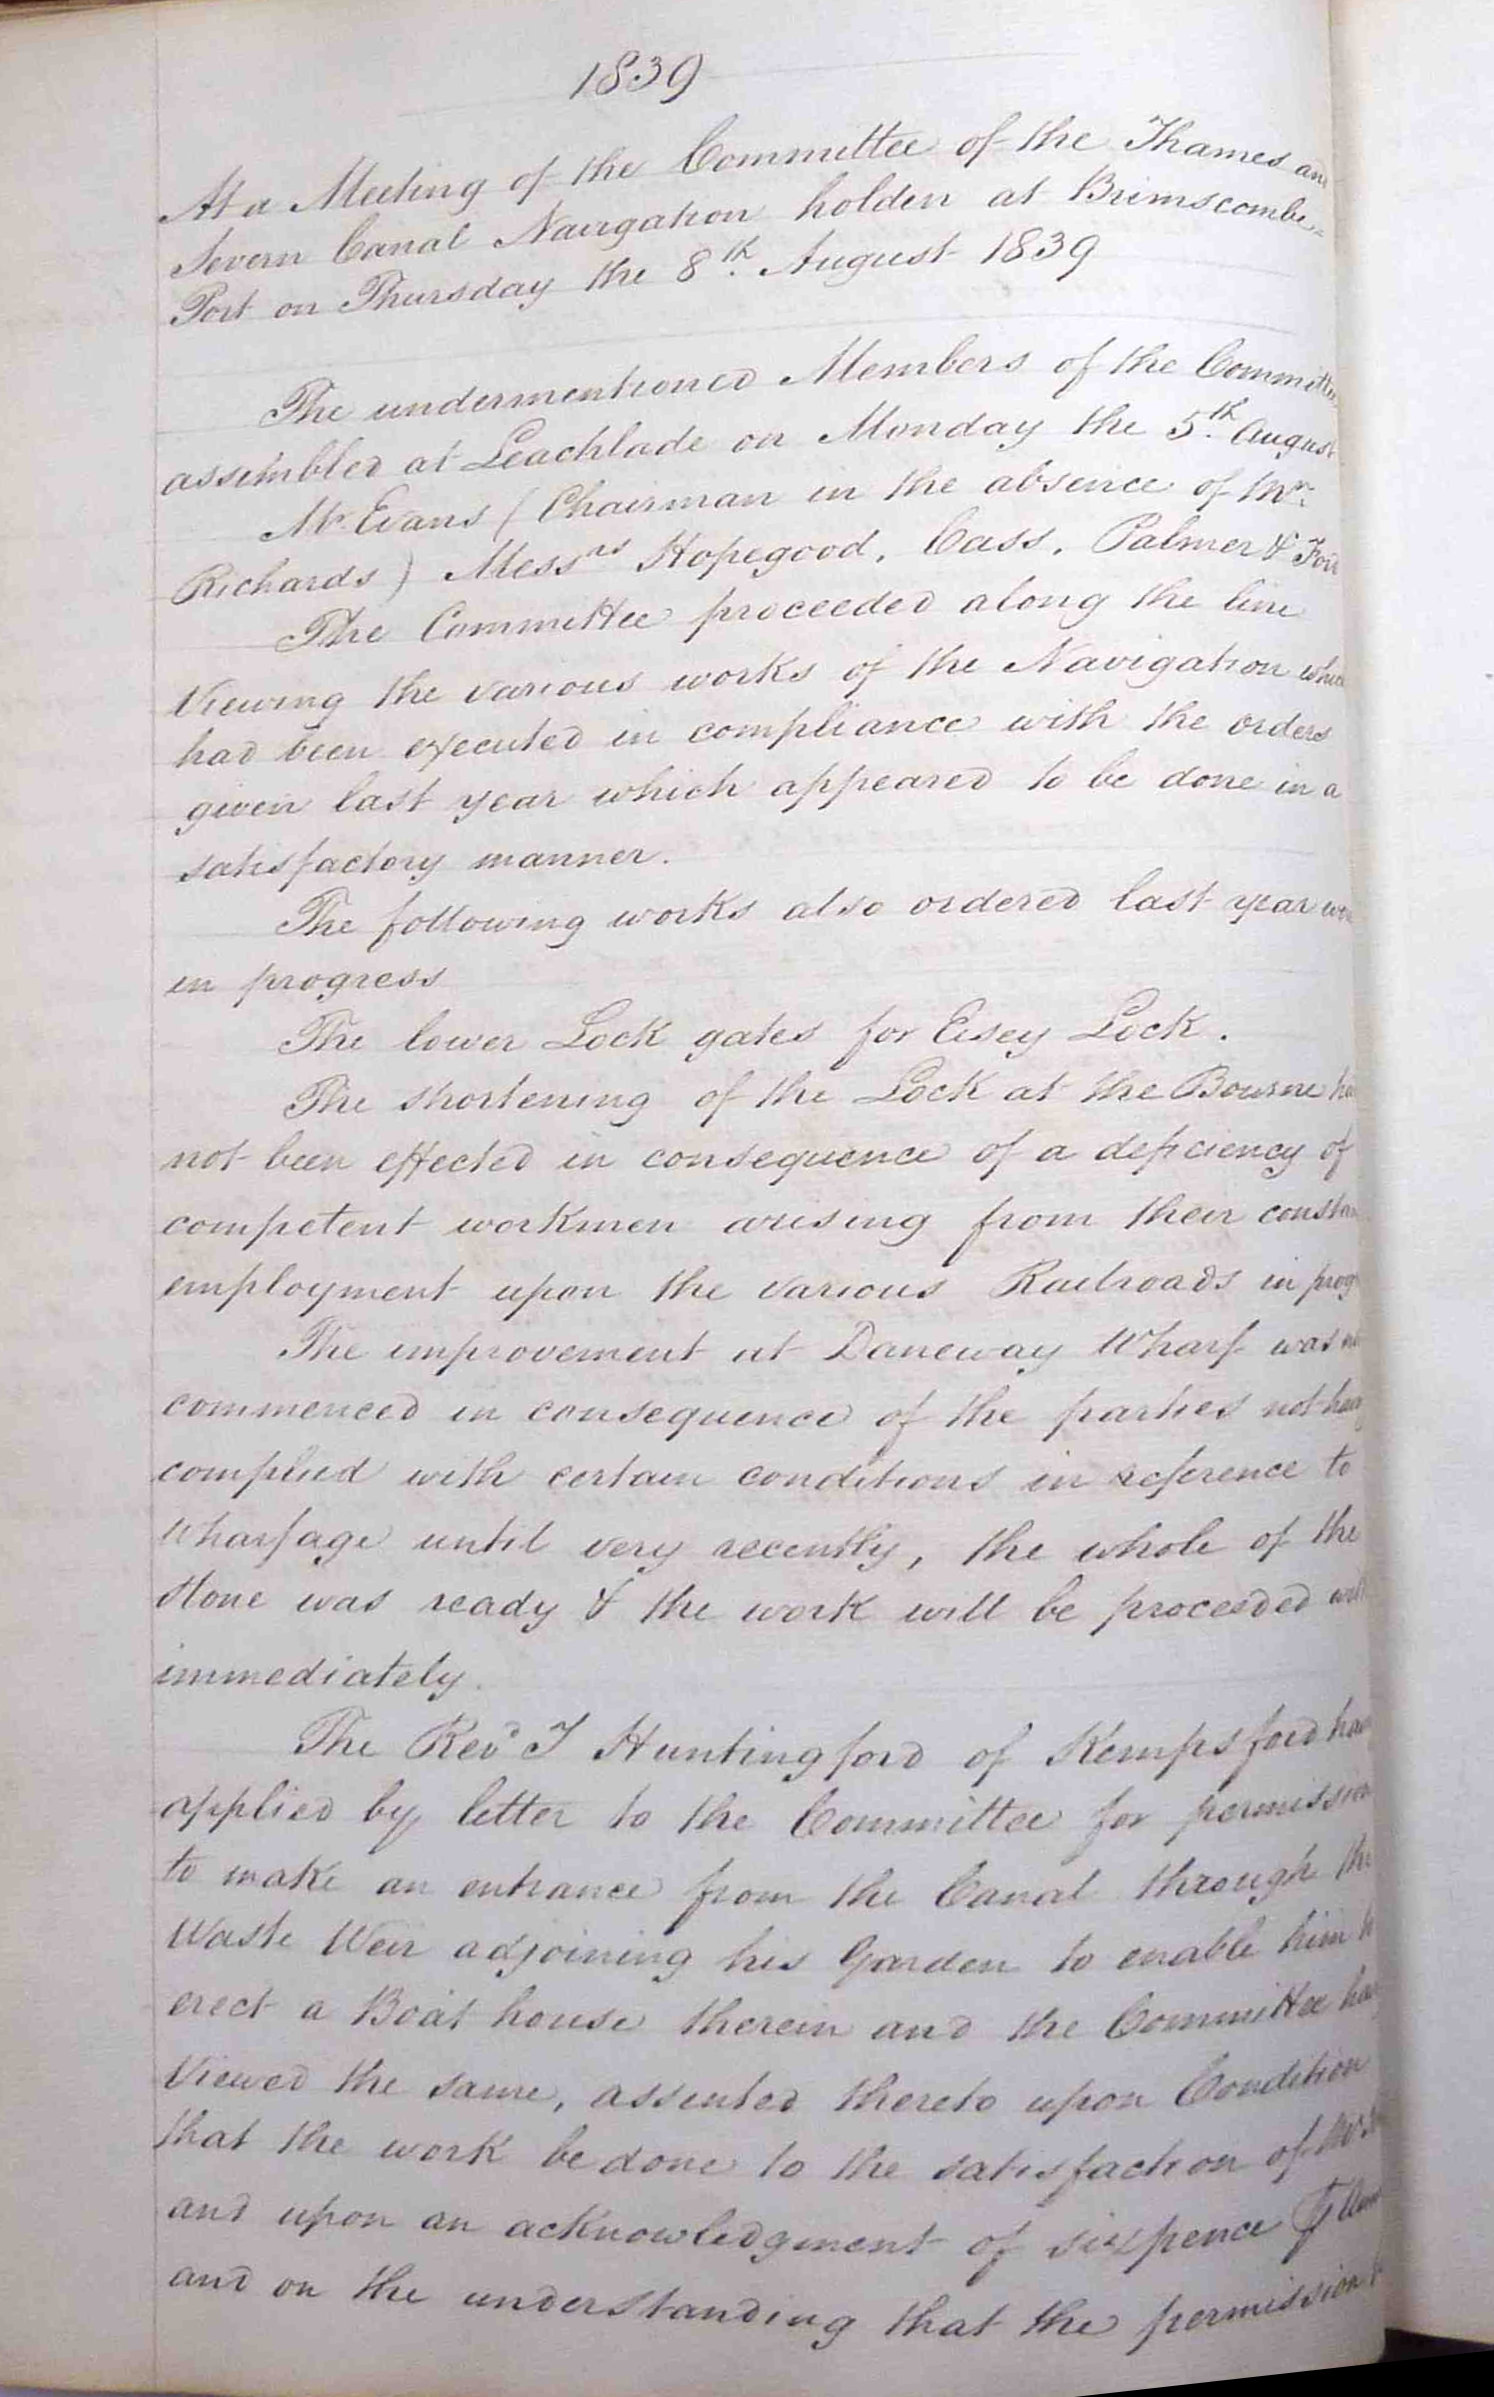 1839
At a Meeting of the Committee of the Thames and
Severn Canal Navigation holden at Brimscombe
Port on Thursday the 8th. August 1839
The undermentioned Members of the Committee
assembled at Leachlade on Monday the 5th. August
Mr. Evans (Chairman in the absence of Mr.
Richards) Messrs Hopegood, Cass, Palmer &
The Committee proceeded along the line
Viewing the various works of the Navigation which
had been executed in compliance with the orders
given last year which appeared to be done in a
satisfactory manner.
The following works also ordered last year were
in progress
The lower Lock gates for Eisey Lock.
The shortening of the Lock at the Bourne
not been effected in consequence of a deficiency of
competent workmen arising from their constan
employment upon the various Railroads in prog
The improvement at Daneway Wharf was
commenced in consequence of the parties not
complied with certain conditions in reference to
Wharfage until very recently, the whole of the
stone was ready & the work will be proceeded with
immediately.
The Revd J Huntingford of Kempsford
applied by letter to the Committee for permission
to make an entrance from the Canal through the
Waste Weir adjoining his Garden to enable him to
erect a Boat house therein and the Committee
Viewed the same, assented thereto upon Condition
that the work be done to the satisfaction of
and upon an acknowledgment of sixpence
and on the understanding that the permission